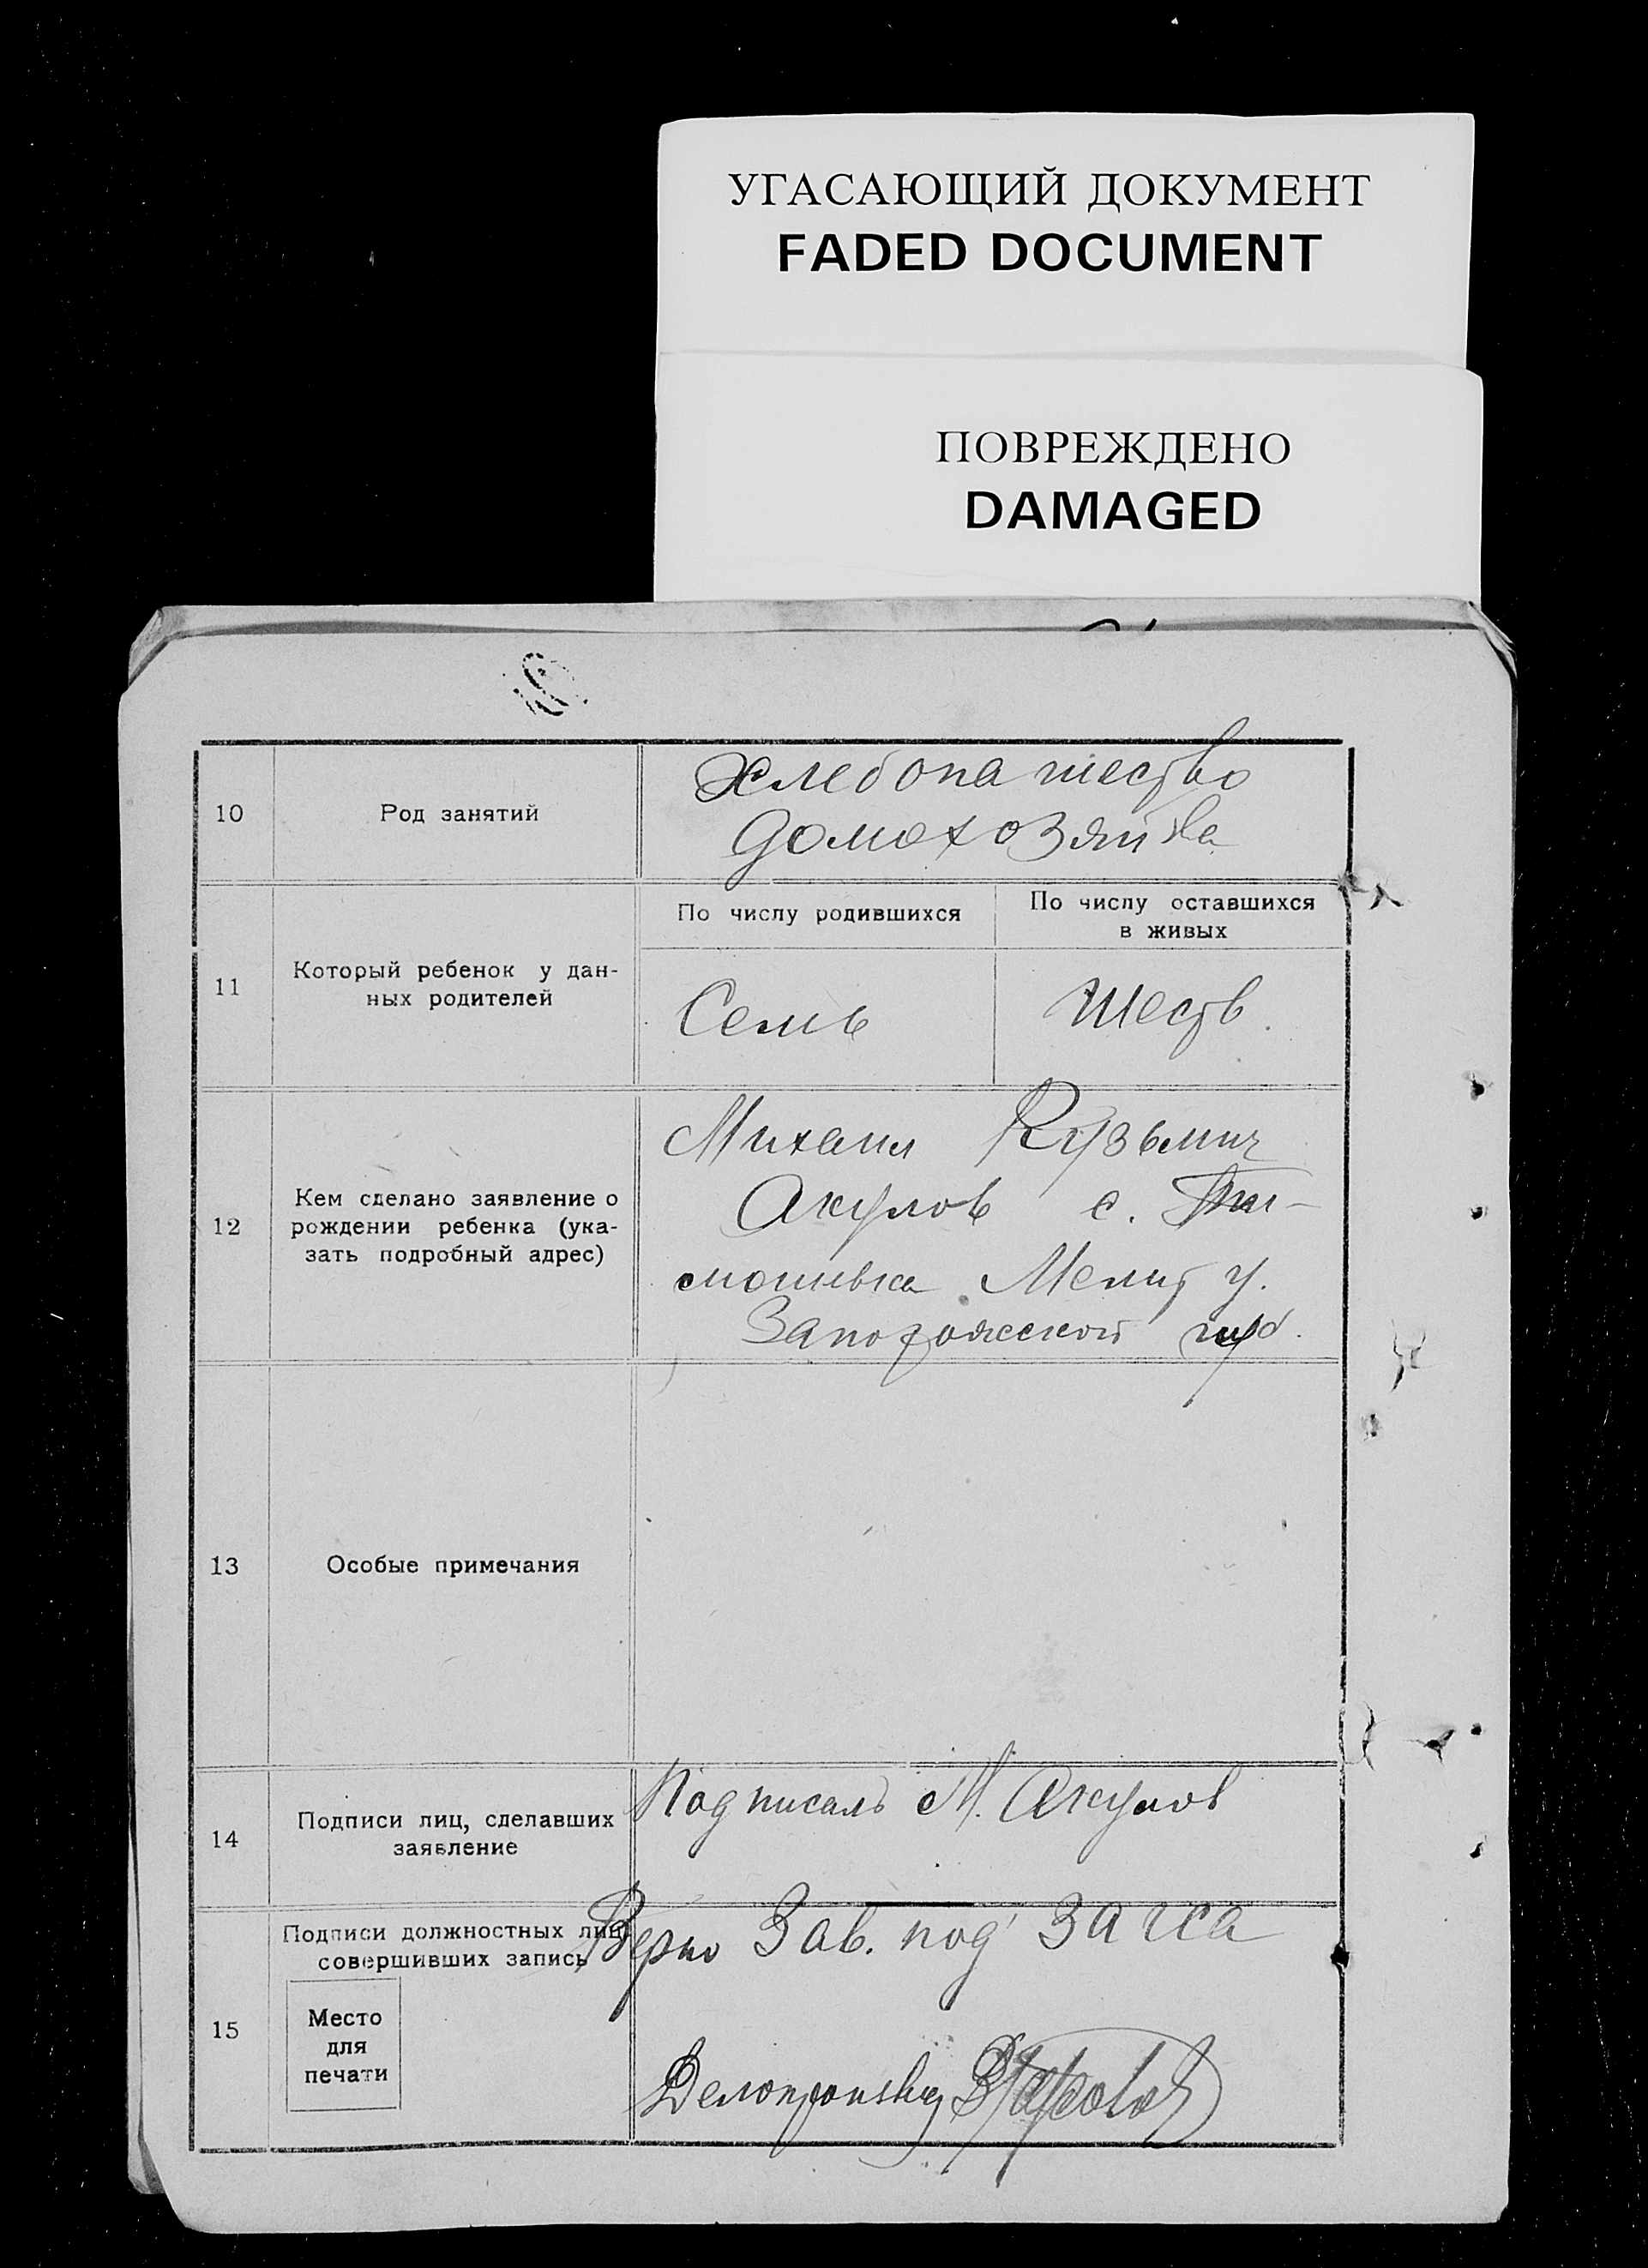 УГАСАЮЩИЙ ДОКУМЕНТ
FADED DOCUMENT
ПОВРЕЖДЕНО
DAMAGED
10
Род занятий
Хлебопашество
домохозяйка
11
Который ребенок у дан-
ных родителей
По числу родившихся
Семь
По числу оставшихся
в живых
Шесть
12
Кем сделано заявление о
рождении ребенка (ука-
зать подробный адрес)
Михаил Кузьмич
Акулов с. Ти-
мошевка Мелит у.
Запорожской губ.
13
Особые примечания
14
Подписи лиц, сделавших
заявление
Подписалъ М. Акулов
15
Подписи должностных лиц,
совершивших запись
Место
для
печати
Верно Зав. под' Загса
Делопроизв